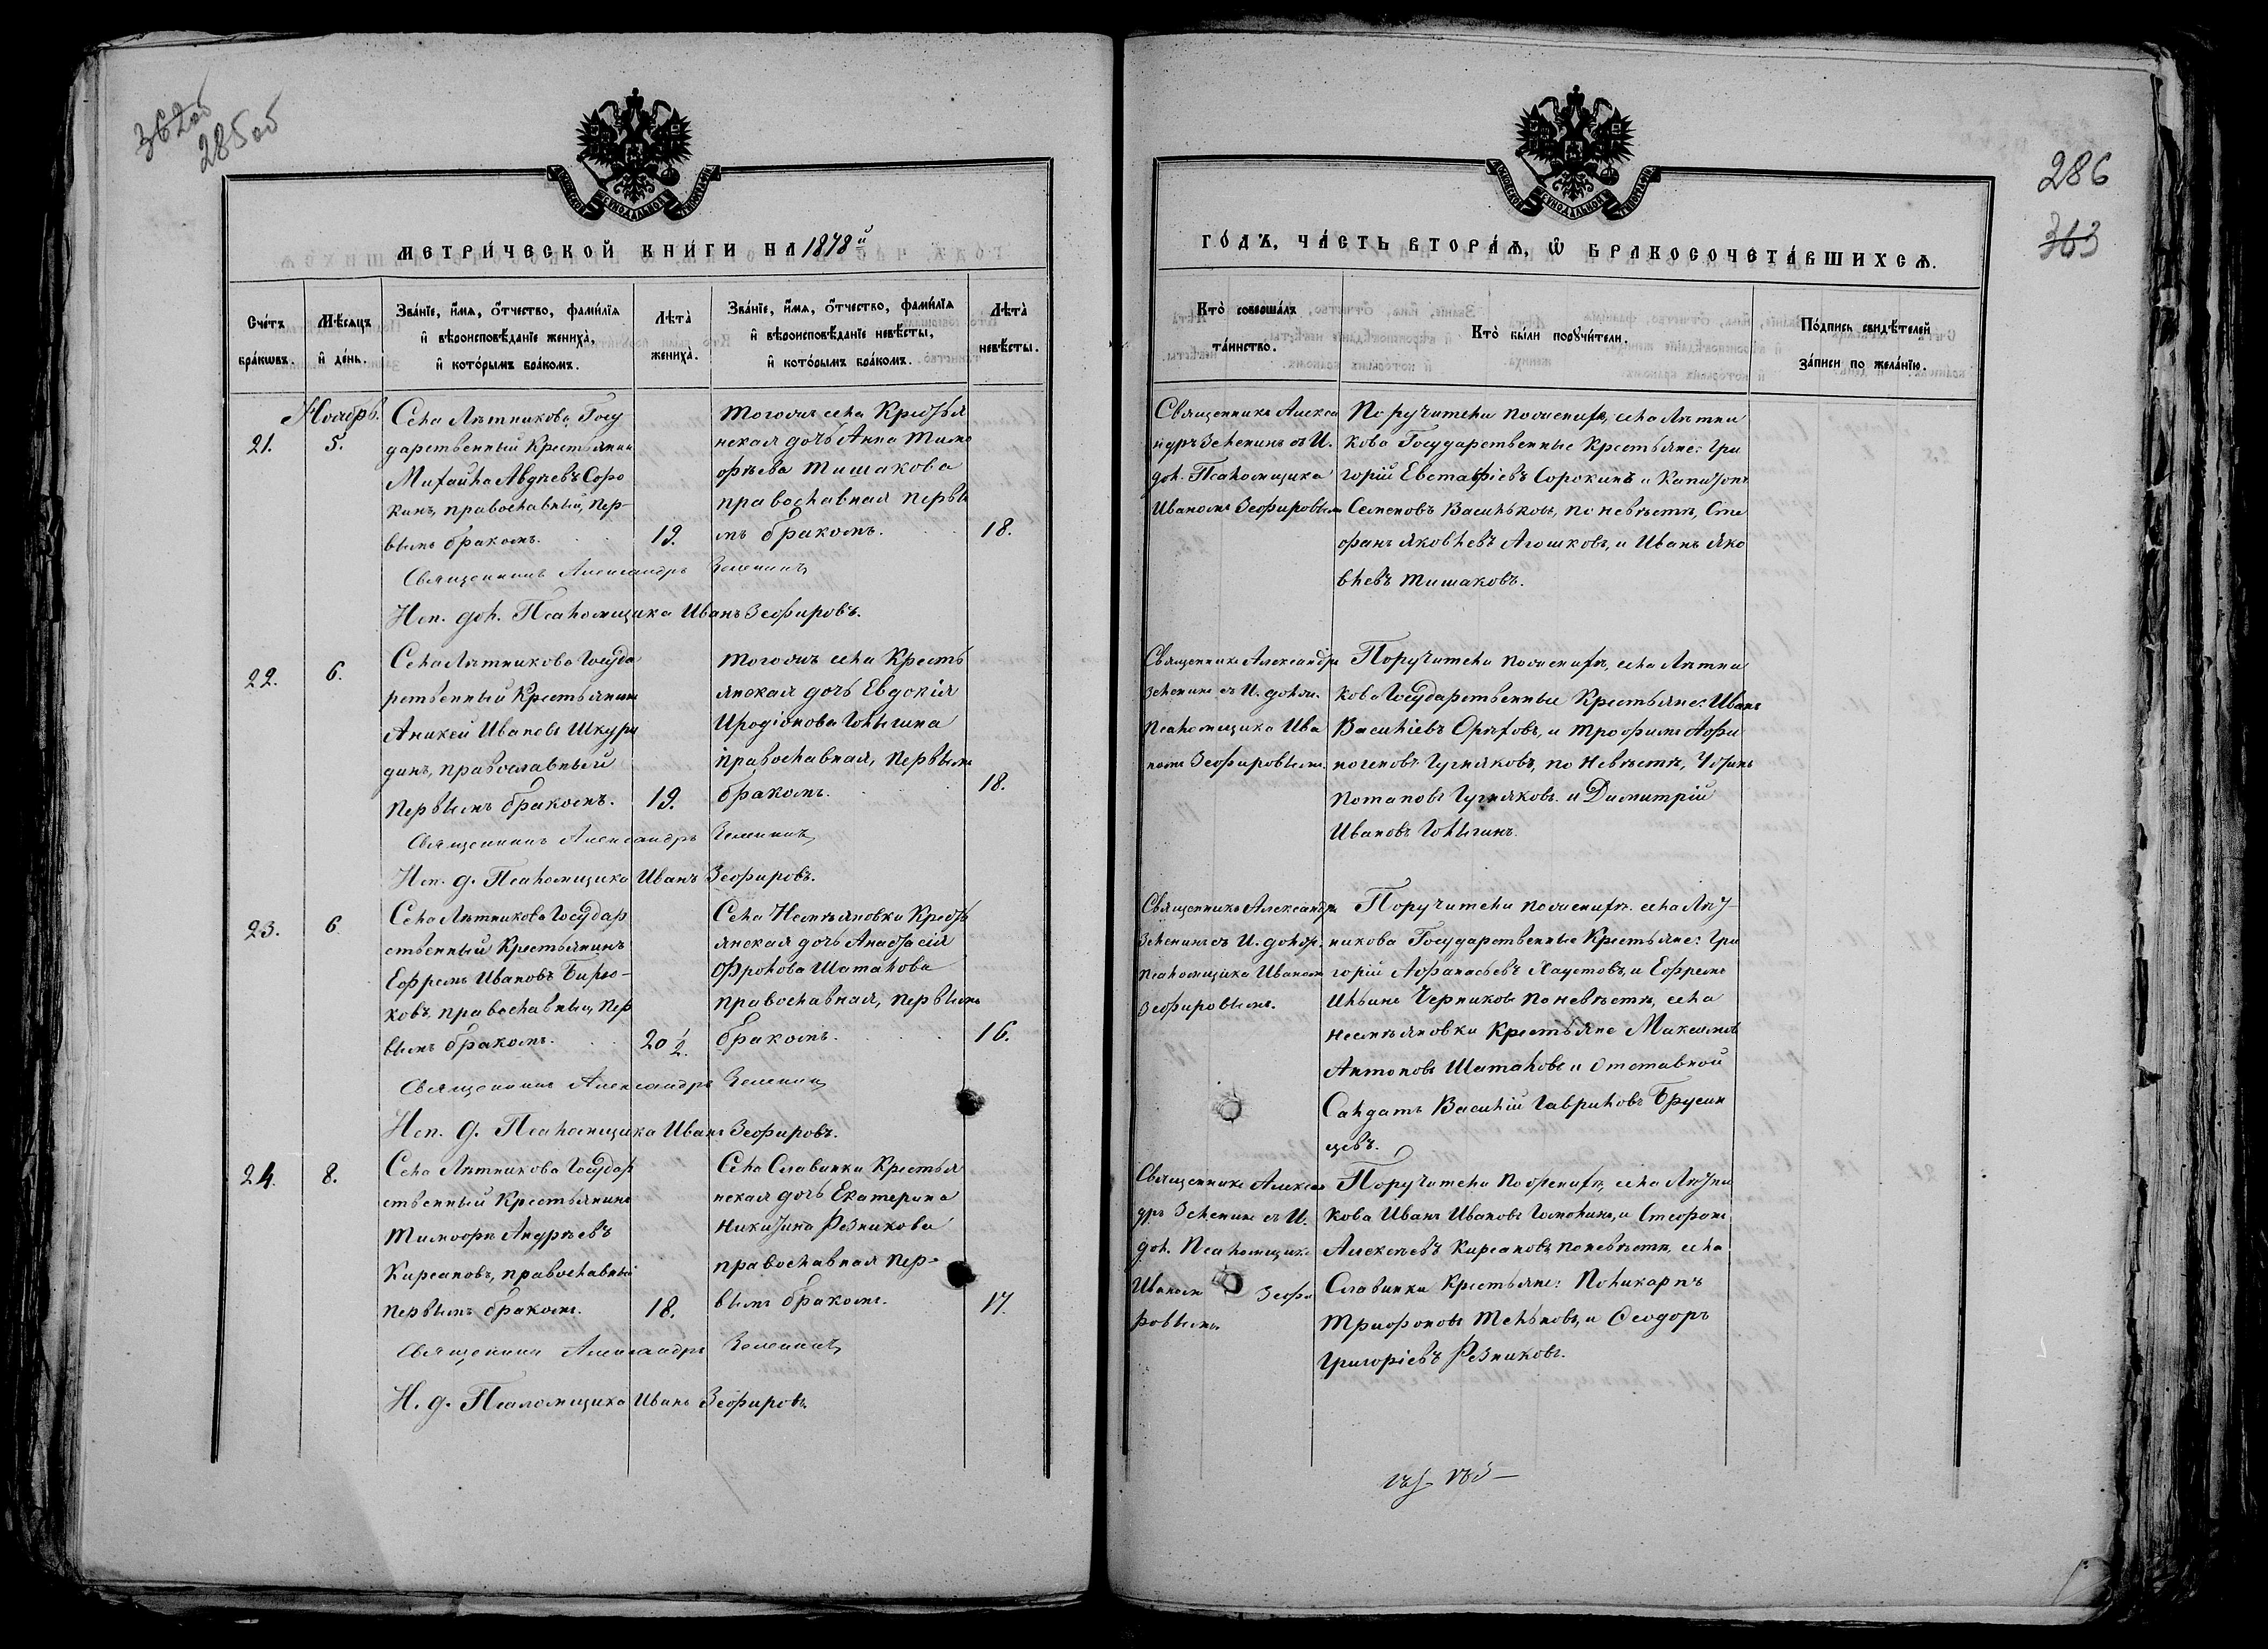 362об
285об
286
363
МОСКОВСКОЙ СѴНОДАЛЬНОЙ ТИПОГРАФІИ
МЕТРИ́ЧЕСКОЙ КНИ́ГИ НА 1878й
Сче́тъ бра́кωвъ.
Мѣ́сяцъ и҆ де́нь.
Зва́нїе, и҆́мѧ, ѻ҆́тчество, фами́лїѧ
и҆ вѣроисповѣ́данїе жениха̀,
и҆ кото́рымъ бра́комъ.
Лѣта̀ жениха̀.
Зва́нїе, и҆́мѧ, ѻ҆́тчество, фами́лїѧ
и҆ вѣроисповѣ́данїе невѣ́сты,
и҆ кото́рымъ бра́комъ.
Лѣта̀ невѣ́сты.
Ноябрь.
21.
5.
Села Лѣтникова Госу
дарственный Крестьянин
Михаилъ Авдѣевъ Соро
кинъ, православный, пер-
вымъ бракомъ.
19.
Тогожъ села Крестья
нская дочь Анна Тимо
фѣева Тишакова
православная первы
мъ бракомъ.
18.
Священникъ Александръ Зеленинъ
Исп. дол. Псаломщика Иванъ Зефировъ.
22.
6.
Села Лѣтникова Госуда
рственный Крестьянинъ
Аникей Ивановъ Шкури
динъ, православный
первымъ бракомъ.
19.
Тогожъ села Кресть
янская дочь Евдокія
Иродіонова Голыгина
православная, первымъ
бракомъ.
18.
Священникъ Александръ Зеленинъ
Исп. д. Псаломщика Иванъ Зефировъ.
23.
6
Села Лѣтникова Государ
ственный Крестьянинъ
Ефремъ Ивановъ Бирю-
ковъ, православный, пер
вымъ бракомъ.
20 ½.
Села Немѣяновки Кресть
янская дочь Анастасія
Фролова Шаталова
православная, первымъ
бракомъ.
16.
Священникъ Александръ Зеленинъ
Исп. д. Псаломщика Иванъ Зефировъ.
24.
8.
Села Лѣтникова Государ
ственный Крестьянинъ
Тимофѣй Андрѣевъ
Кирсановъ, православный
первымъ бракомъ.
18.
Села Славинки Крестья
нская дочь Екатерина
Никитина Резникова
православная пер-
вымъ бракомъ.
17.
Священникъ Александръ Зеленинъ
И. д. Псаломщика Иванъ Зефировъ.
ГО́ДЪ, ЧА́СТЬ ВТОРА́Ѧ, Ѡ҆ БРАКОСОЧЕТА́ВШИХСѦ.
МОСКОВСКОЙ СѴНОДАЛЬНОЙ ТИПОГРАФІИ
Кто̀ соверша́лъ
та́инство.
Кто̀ бы́ли порꙋчи́тели.
По́дпись свидѣ́телей
за́писи по жела́нїю.
Священникъ Алекса
ндръ Зеленинъ съ И.
дол. Псаломщика
Иваномъ Зефировымъ
Поручители по женихѣ, села Лѣтни
кова Государственные Крестьяне: Гри
горій Евстафіевъ Сорокинъ и Капитонъ
Семеновъ Васильковъ, по невѣстѣ, Сте
фанъ Яковлевъ Агошковъ, и Иванъ Яко
влевъ Тишаковъ.
Священникъ Александръ
Зеленинъ съ И. долж.
Псаломщика Ива
номъ Зефировымъ.
Поручители по женихѣ, села Лѣтни
кова Государственные Крестьяне: Иванъ
Василіевъ Орѣховъ, и Трофимъ Афи
ногеновъ Гугняковъ, по невѣстѣ,
Потаповъ Гугняковъ и Димитрій
Ивановъ Голыгинъ.
Священникъ Александръ
Зеленинъ съ И. долж.
псаломщика Иваномъ
Зефировымъ.
Поручители по женихѣ. села Лѣт-
никова Государственные Крестьяне: Гри
горій Афанасьевъ Хаустовъ, и Ефремъ
Ильинъ Черниковъ по невѣстѣ, села
Немѣяновки Крестьяне Максимъ
Антоновъ Шаталовъ и Отставной
Салдатъ Василій Гавриловъ Брусен
цевъ.
Священникъ Алексан
дръ Зеленинъ съ И.
дол. Псаломщика
Иваномъ Зефи
ровымъ.
Поручители по женихѣ, села Лѣтни
кова Иванъ Ивановъ Гамолинъ, и Стефанъ
Алексѣевъ Кирсановъ по невѣстѣ, села
Славинки Крестьяне: Поликарпъ
Трифоновъ Тельновъ, и Ѳеодоръ
Григоріевъ Резниковъ.